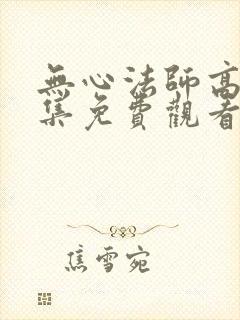 無心法師高
集免費觀看
焦雪宛